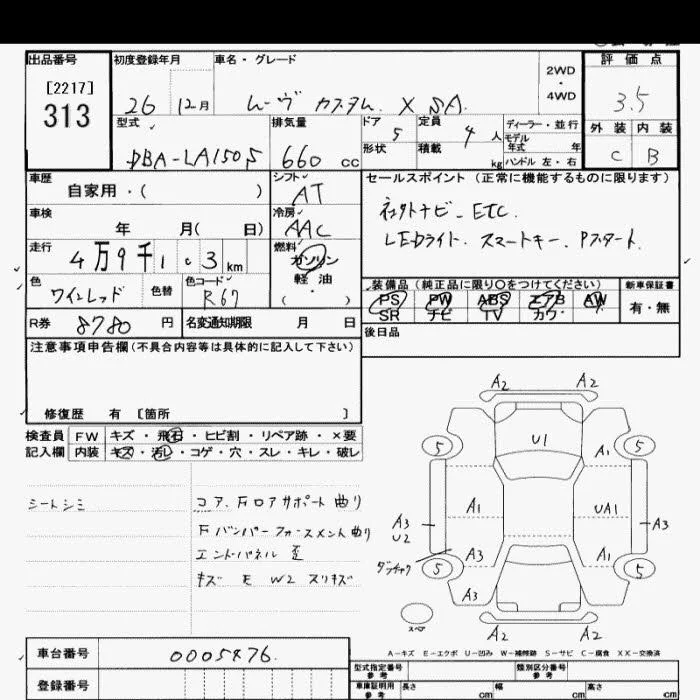 出品番号
[2217]
313
初度登録年月
26 12月
車名・グレード
ムーヴ カスタム X SA
2WD
・
4WD
評価点
3.5
外装 内装
C B
型式
DBA-LA150S
排気量
660 cc
ドア
5
形状
定員
4 人
積載
kg
ディーラー・並行
モデル
年式 年
ハンドル 左・右
車歴
自家用・( )
シフト
AT
車検
年 月( 日)
冷房
AAC
走行
4万9千1 0 3 km
燃料
ガソリン
軽油
( ・ )
色
ワインレッド
色替
色コード
R67
R券 8780 円
名変通知期限 月 日
セールスポイント(正常に機能するものに限ります)
ネオトナビ ETC
LEDライト. スマートキー. Pスタート.
装備品(純正品に限り○をつけてください)
PS PW ABS エアB AW
SR ナビ TV カワ
新車保証書
有・無
後日品
注意事項申告欄(不具合内容等は具体的に記入して下さい)
修復歴 有 [箇所 ]
検査員
記入欄
FW キズ・飛石・ヒビ割・リペア跡・×要
内装 キズ・汚レ・コゲ・穴・スレ・キレ・破レ
シートシミ
コア.Fロアサポート曲り
Fバンパーフォースメント曲り
エンドパネル 歪
キズ E W2 スリキズ
A2 A2
U1
5 5
A1
A1 UA1
A3
U2
A3
A3 A1
ダッチャク
5 5
A3
A2 A2
スペア
A-キズ E-エクボ U-凹み W-補修跡 S-サビ C-腐食 XX-交換済
車台番号 0005876
登録番号
型式指定番号
参考
類別区分番号
参考
車庫証明用
参考
長さ cm
幅 cm
高さ cm